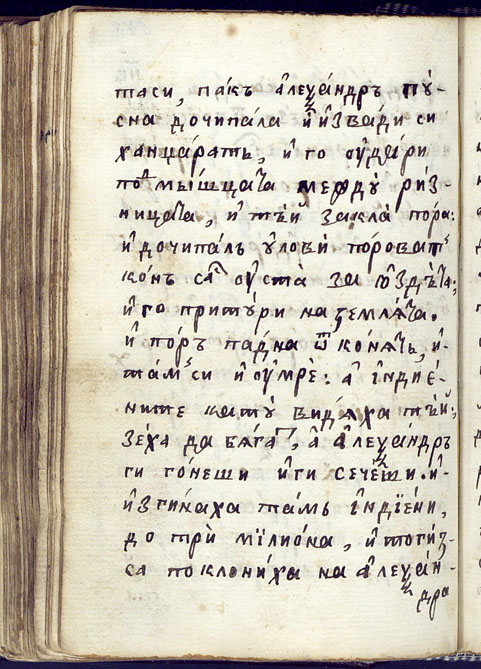 таси, пакъ а҆леѯа́ндръ пꙋ́-
сна дочипала и҆ и҆звади си
ханца́рать, и҆ го ѹ҆да́ри
подмы́щцата междꙋ̀ ри́з-
ницата, и҆ тъй закла̀ пора:
и҆ дочипа́лъ ᲂу҆ловѝ по́роват
ко́нъ са ѹста̀ за ю҆здъта;
и҆ го притꙋ́ри на землѧ́та.
и҆ по́ръ па́дна ѿ коня́ть, и҆
та́мъ си и҆ ѹ҆мрѐ: а҆ і҆ндїе́-
ните катꙋ̀ видѧха тъй,
зе́ха да бѧ́гат, а҆ а҆леѯа́ндръ
ги го́неши и҆ ги сече́ши. и҆
и҆згина́ха тамъ і҆ндїе́ни,
до трѝ мїлио́на, и҆ тоги́з-
са поклони́ха на а҆леѯа́н-
дра